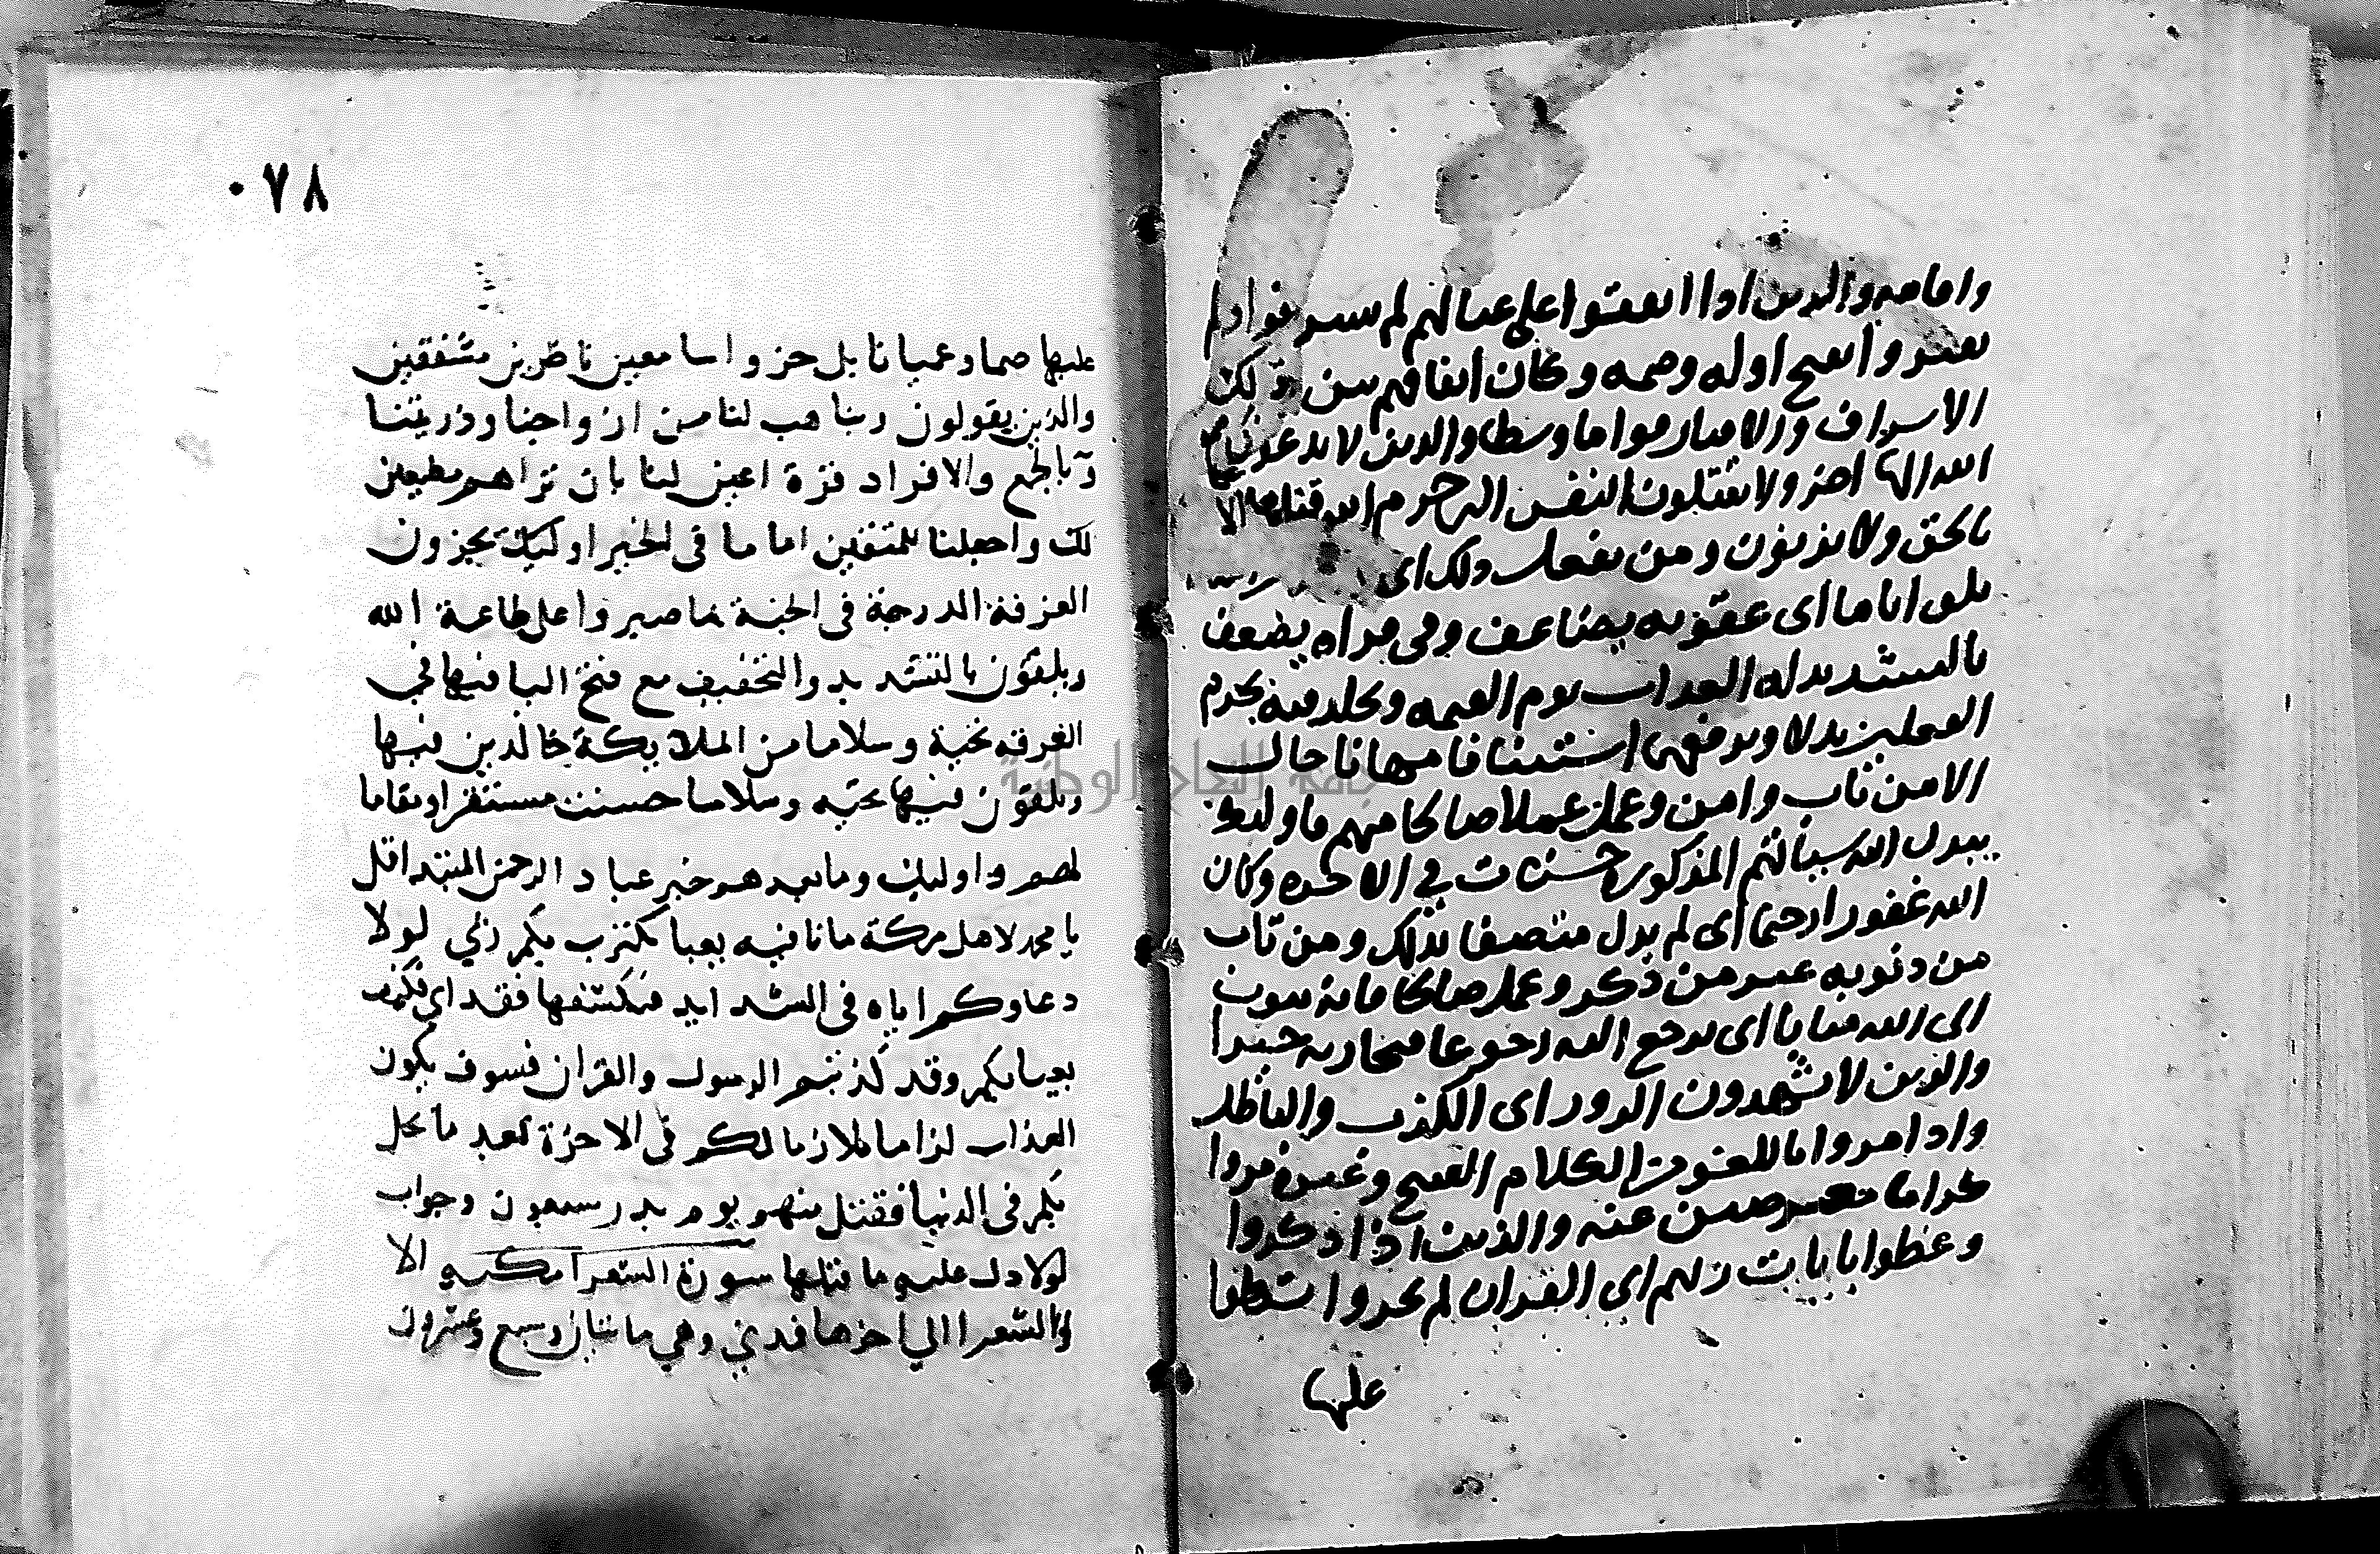 واقامه والذين اذا انفقوا على عيالهم لم يسرفوا ولم
يقتروا بفتح اوله وضمه وكان انفاقهم بين ذلك
الاسراف والاقتار قواما وسطا والذين لا يدعون مع
الله الها اخر ولا يقتلون النفس التي حرم الله قتلها الا
بالحق ولا يزنون ومن يفعل ذلك اى
يلق اثاما اى عقوبه يضاعف وفى قراه يضعف
بالتشديد له العذاب يوم القيمه ويخلد فيه بجزم
الفعلين بدلا وبرفعهما استئنافا مهانا حال
الا من تاب وامن وعمل عملا صالحا منهم فاوليك
يبدل الله سياتهم المذكورة حسنات في الاخره وكان
الله غفورا رحيما اى لم يزل متصفا بذلك ومن تاب
من ذنوبه غير من ذكر وعمل صالحا فانه يتوب
الى الله متابا اى يرجع اليه رجوعا فيجازيه خيرا
والذين لا يشهدون الزور اى الكذب والباطل
واذا مروا باللغو من الكلام القبيح وغيره مروا
كراما معرضين عنه والذين اذا ذكروا
وعظوا بايات ربهم اي القران لم يخروا سقطوا
عليها
٠٧٨
عليها صما وعميانا بل خروا سامعين ناظرين متفقين
والذين يقولون ربنا هب لنا من ازواجنا وذريتنا
بالجمع والافراد قرة اعين لنا بان نراهم مطيعين
لك واجعلنا للمتقين اماما في الخير اوليك يجزون
الغرفة الدرجة في الجنة بما صبروا على طاعة الله
ويلقون بالتشديد والتخفيف مع فتح اليا فيها في
الغرفه تحية وسلاما من الملايكة خالدين فيها
ويلقون فيها تحيه وسلاما حسنت مستقرا ومقاما
لهم واوليك وما بعدهم خبر عباد الرحمن المبتدا قل
يا محمد لاهل مكة ما نافيه يعبا يكترث بكم ربي لولا
دعاوكم اياه في الشدايد فيكشفها فقد اي فكيف
يعبا بكم وقد كذبتم الرسول والقران فسوف يكون
العذاب لزاما ملازما لكم في الاخرة بعد ما يحل
بكم في الدنيا فقتل منهم يوم بدر سبعون وجواب
لولا دل عليه ما قبلها سورة الشعرا مكية الا
والشعرا الي اخرها فمدني وهي مايتان وسبع وعشرون